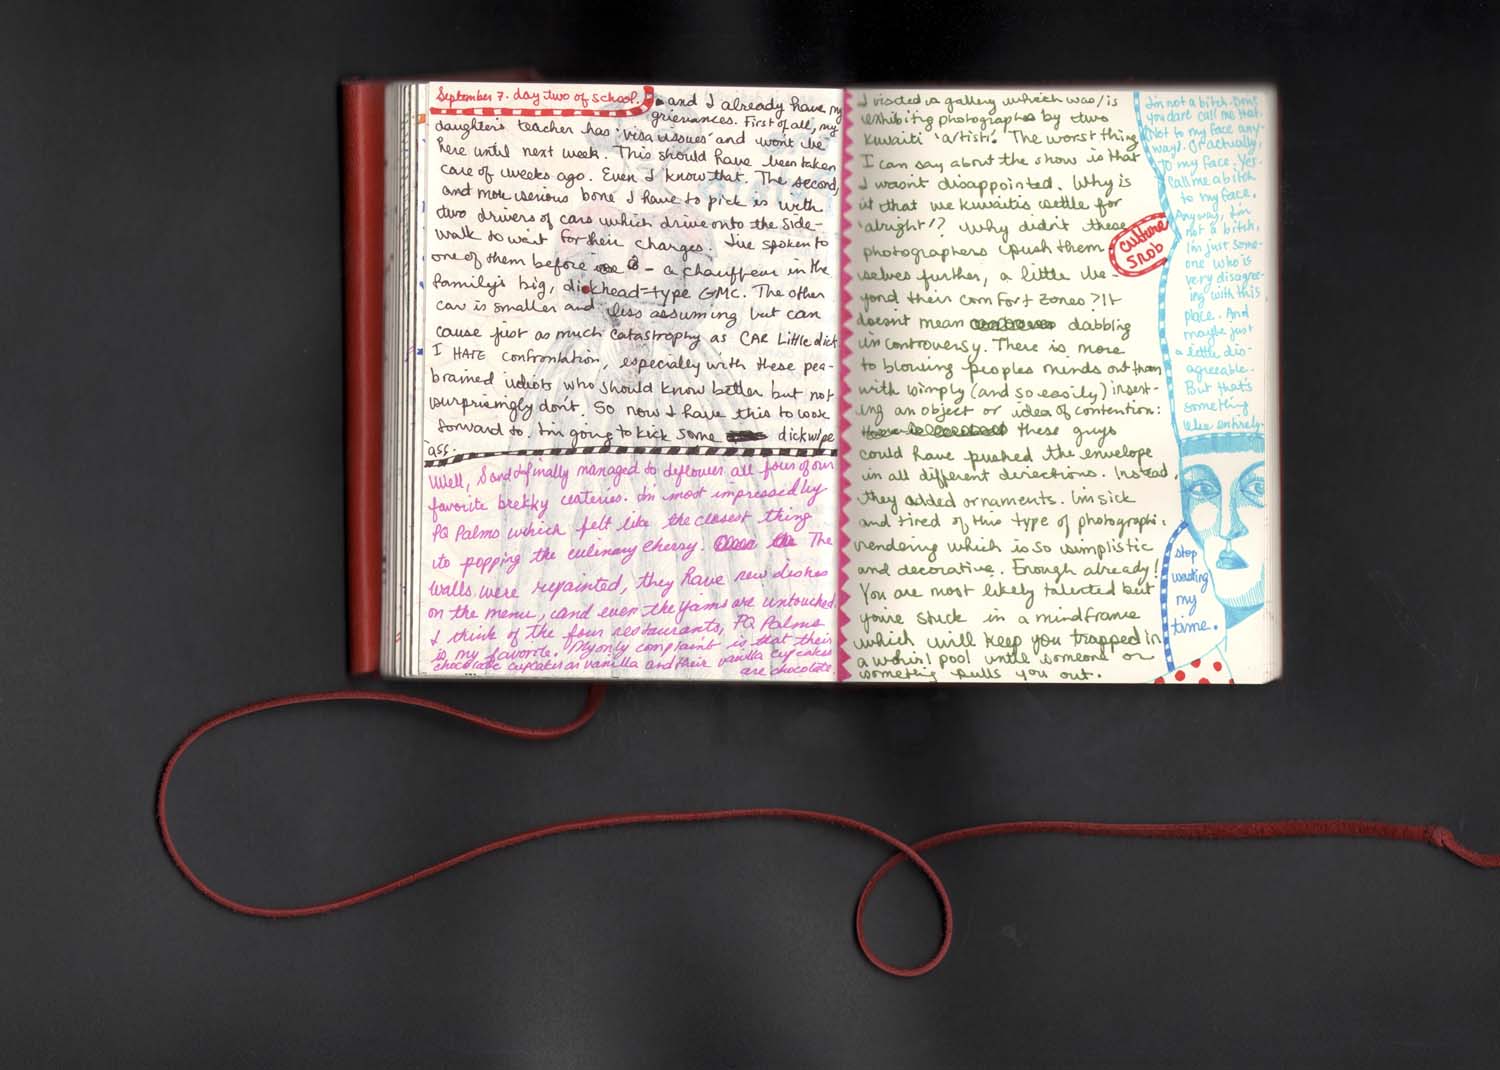 September 7. day two of school.
and I already have my
grievances. First of all, my
daughter's teacher has 'visa issues' and won't be
here until next week. This should have been taken
care of weeks ago. Even I know that. The second,
and more serious bone I have to pick is with
two drivers of cars which drive onto the side-
walk to wait for their charges. I've spoken to
one of them before - a chauffeur in the
family's big, dickhead-type GMC. The other
car is smaller and less assuming but can
cause just as much catastrophy as CAR Little dick
I HATE confrontation, especially with these pea-
brained idiots who should know better but not
surprisingly don't. So now I have this to look
forward to. I'm going to kick some dickwipe
ass.
Well, S and I finally managed to deflower all four of our
favorite brekky eateries. I'm most impressed by
PQ Palms which felt like the closest thing
to popping the culinary cherry. The
walls were repainted, they have new dishes
on the menu, and even the yams are untouched.
I think of the four restaurants, PQ Palms
is my favorite. My only complaint is that their
chocolate cupcakes are vanilla and their vanilla cupcakes
are chocolate.
I visited a gallery which was/is
exhibiting photographs by two
Kuwaiti 'artists'. The worst thing
I can say about the show is that
I wasn't disappointed. Why is
it that we Kuwaitis settle for
'alright'? Why didn't these
photographers push them-
selves further, a little be-
yond their comfort zones? It
doesn't mean dabbling
in controversy. There is more
to blowing peoples minds out than
with simply (and so easily) insert-
ing an object or idea of contention:
these guys
could have pushed the envelope
in all different directions. Instead,
they added ornaments. I'm sick
and tired of this type of photographic
rendering which is so simplistic
and decorative. Enough already!
You are most likely talented but
you're stuck in a mindframe
which will keep you trapped in
a whirl pool until someone or
something pulls you out.
culture
snob
I'm not a bitch. Don't
you dare call me that.
Not to my face any-
way. Or actually,
to my face. Yes.
Call me a bitch
to my face.
Anyway, I'm
not a bitch,
I'm just some-
one who is
very disagree-
ing with this
place. And
maybe just
a little dis-
agreeable.
But that's
something
else entirely.
stop
wasting
my
time.